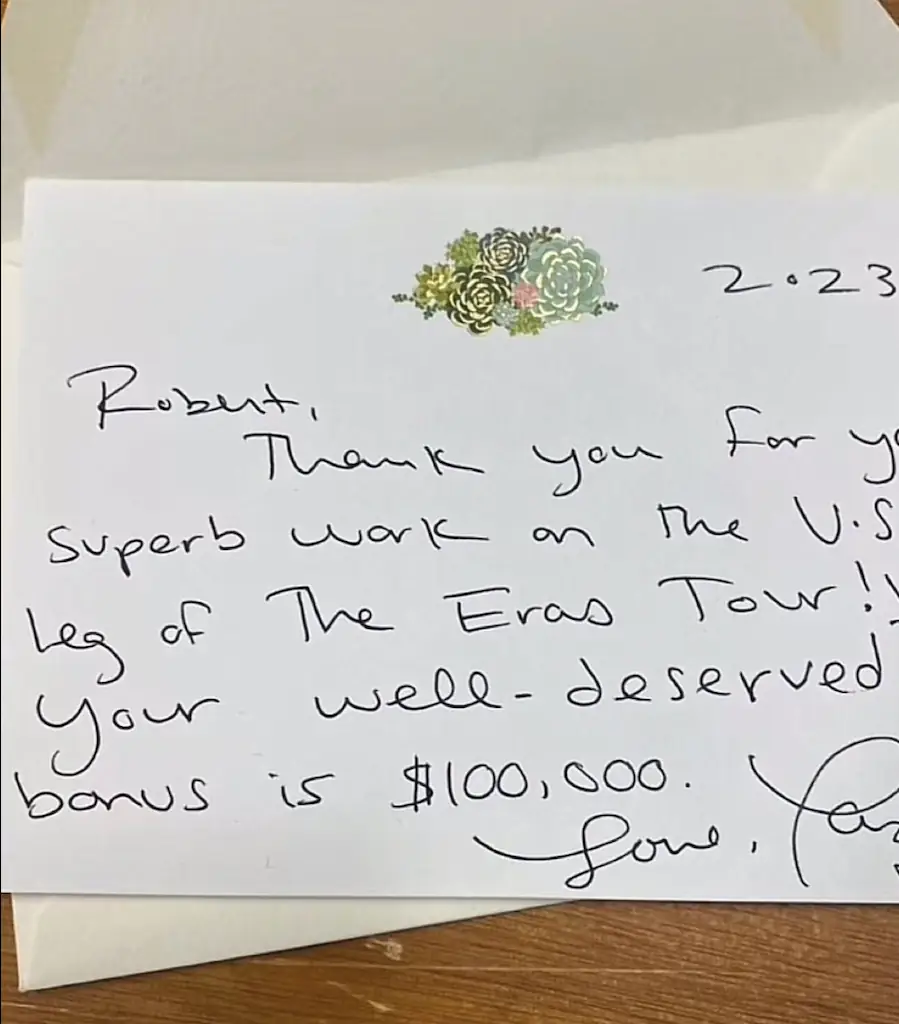 2.23
Robert,
Thank you for
superb work on the U.S
leg of The Eras Tour!!
Your well-deserved
bonus is $100,000.
Love,